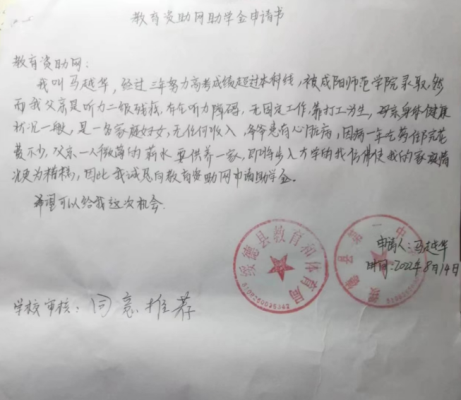 教育资助网助学金申请书
教育资助网:
我叫马越华,经过三年努力高考成绩超过本科线,被咸阳师范学院录取,然
而我父亲是听力二级残疾,存在听力障碍,无固定工作,靠打工为生,母亲身体健康
状况一般,是一名家庭妇女,无任何收入,爷爷患有心脏病,因两一年吃药住院花
费不少,父亲一人微薄的薪水要供养一家,即将步入大学的我仿佛使我的家庭情
况更为糟糕,因此我诚恳向教育资助网申请助学金。
希望可以给我这次机会.
绥德县教育和体育局
申请人:马越华
时间:2022年8月14日
学校审核:同意推荐